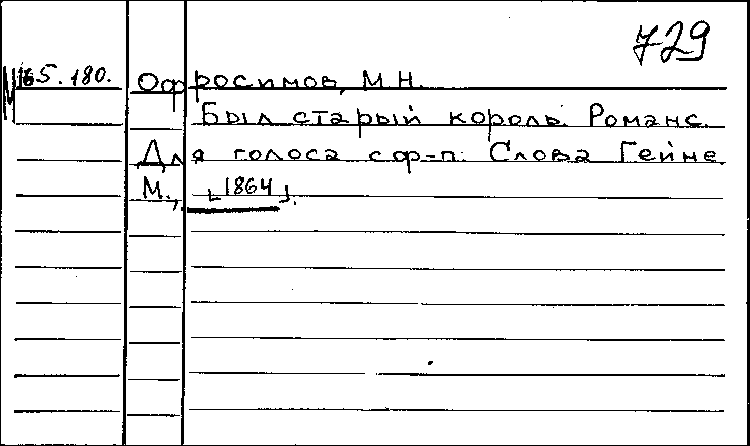 729
М165.180. Офросимов, М.Н.
Был старый король. Романс.
Для голоса с ф-п. Слова Гейне
М., [1864].